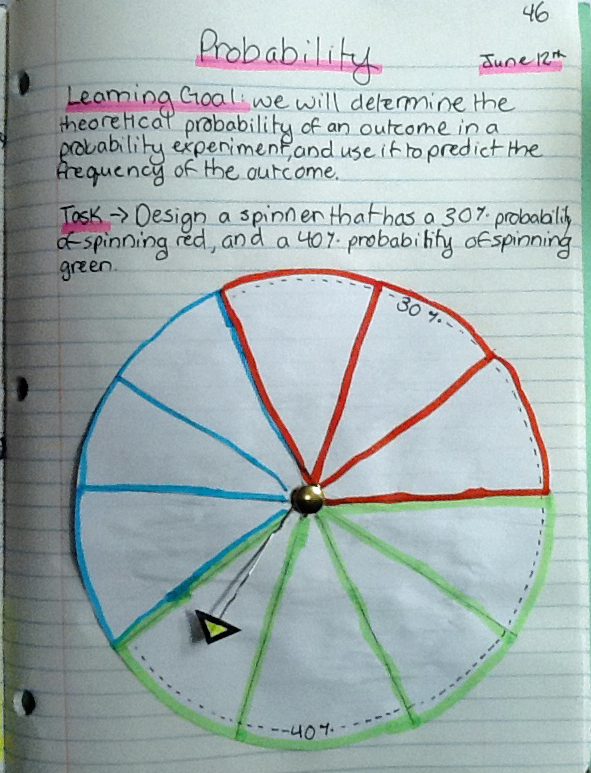 46
Probability
June 12th
Learning Goal: we will determine the
theoretical probability of an outcome in a
probability experiment, and use it to predict the
frequency of the outcome.
Task → Design a spinner that has a 30% probability
of spinning red, and a 40% probability of spinning
green.
30%
40%